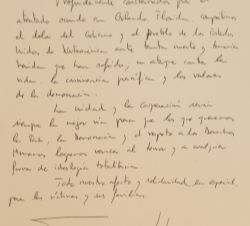 Profundamente consternados por el
atentado ocurrido en Orlando, Florida, compartimos
el dolor del Gobierno y el pueblo de los Estados
Unidos de Norteamérica ante tanta muerte y tanta
herida que han sufrido, un ataque contra la
vida, la convivencia pacífica y los valores
de la democracia.
La unidad y la cooperación serán
siempre la mejor vía para que los que queremos
la Paz, la Democracia y el respeto a los Derechos
Humanos logremos vencer al terror y a cualquier
forma de ideología totalitaria.
Todo nuestro afecto y solidaridad, en especial,
para las víctimas y sus familias.